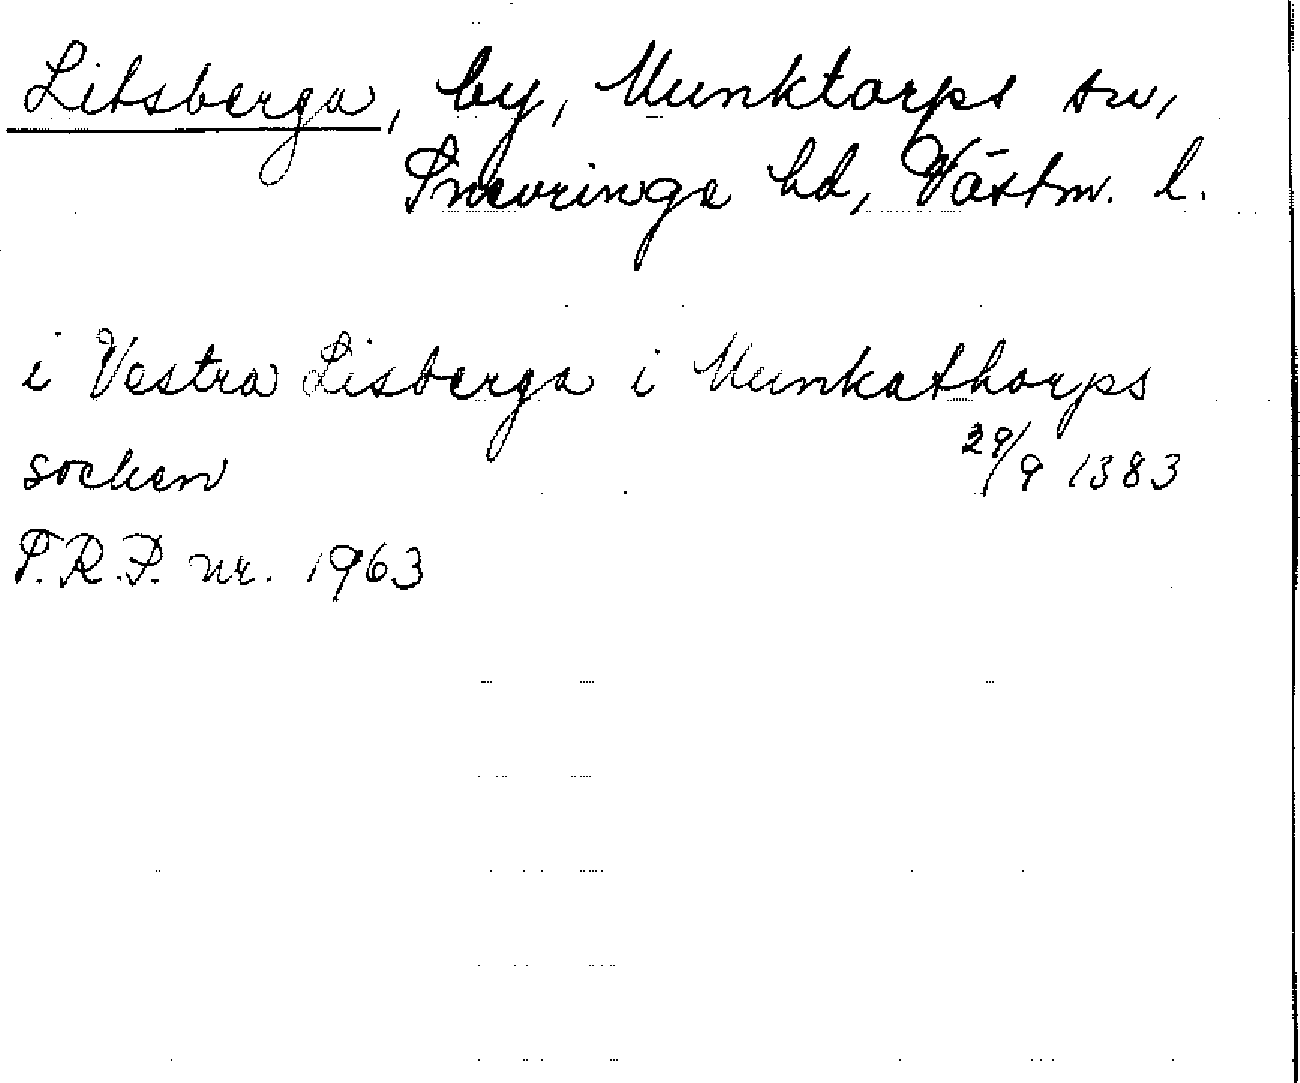 Litsberga, by, Munktorps sn,
Snevringe hd, Västm. l.
i Vestra Lisberga i Munkathorps
socken 29/9 1383
S.R.P. nr. 1963